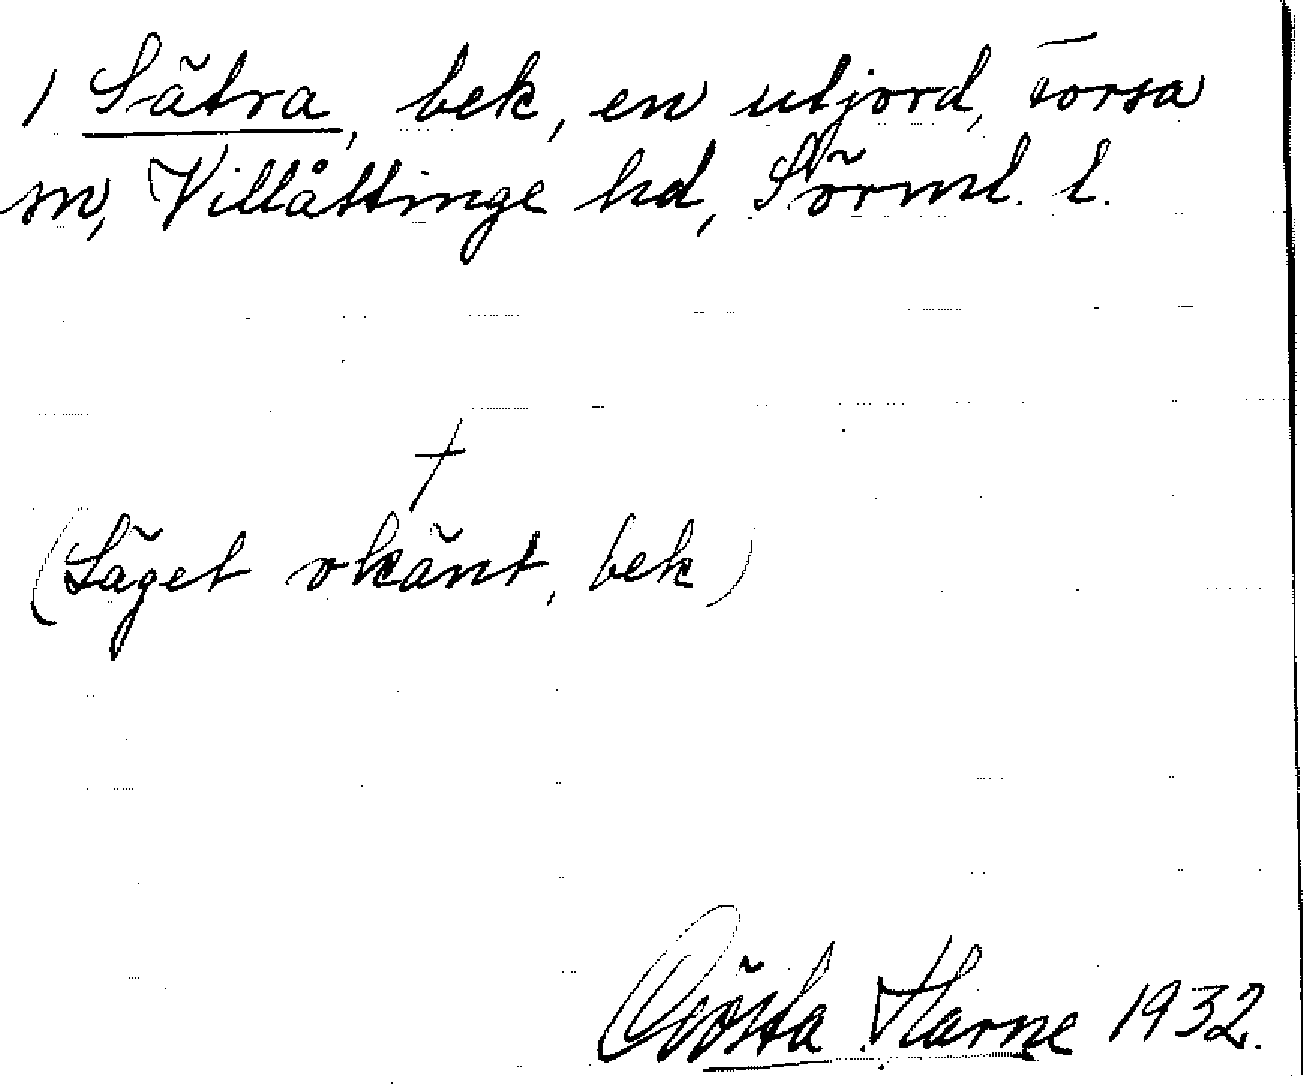 1 Sätra, bek, en utjord, Torsa
sn, Villåttinge hd, Sörml. l.
†
(Läget okänt, bek)
Gösta Harne 1932.